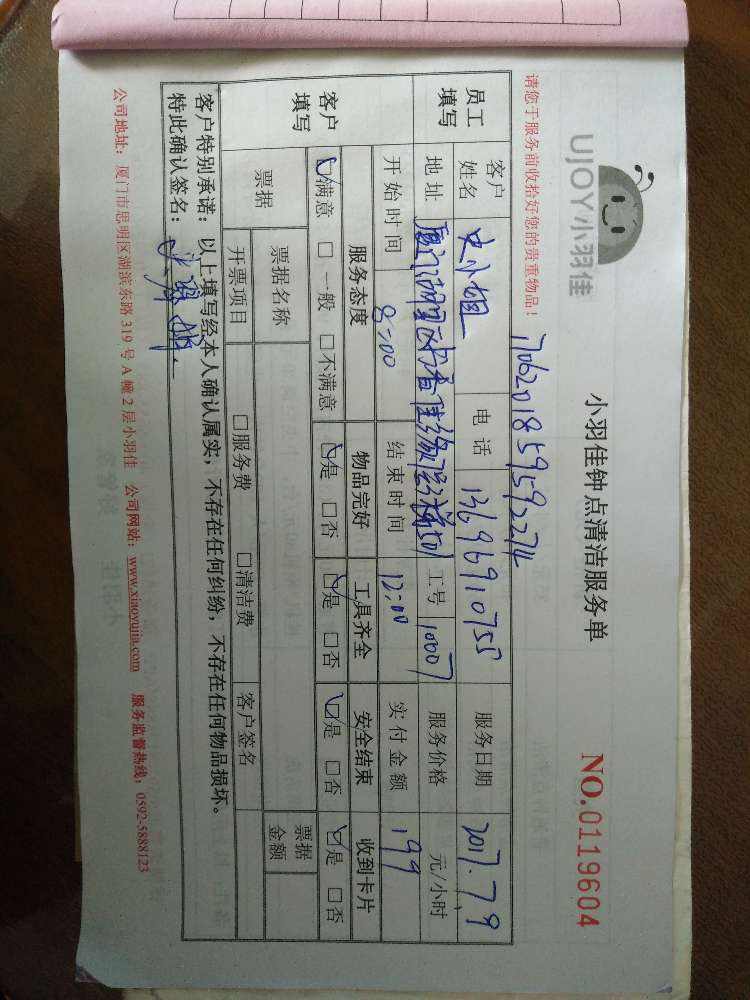 UJOY小羽佳
小羽佳钟点清洁服务单
NO.0119604
请您于服务前收拾好您的贵重物品！
1706201859592274
员工填写 客户姓名 史小姐 电话 13696910755 服务日期 2017.7.9
地址 工号 10007 服务价格 元/小时
开始时间 8:00 结束时间 12:00 实付金额 199
客户填写 服务态度 物品完好 工具齐全 安全结束 收到卡片
☑满意 □一般 □不满意 ☑是 □否 ☑是 □否 ☑是 □否 ☑是 □否
票据 票据名称 票据金额
开票项目 □服务费 □清洁费 客户签名
客户特别承诺：以上填写经本人确认属实，不存在任何纠纷，不存在任何物品损坏。
特此确认签名：
公司地址：厦门市思明区湖滨东路 319 号 A 幢 2 层小羽佳 公司网站：www.xiaoyujia.com 服务监督热线：0592-5888123